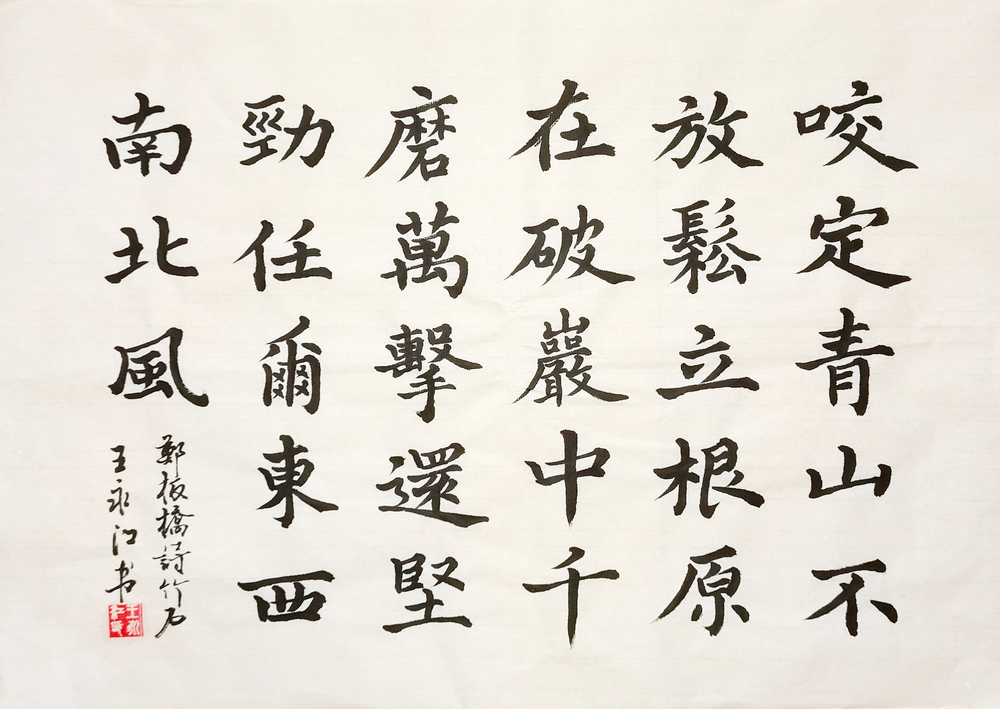 咬定青山不
放鬆立根原
在破巖中千
磨萬擊還堅
勁任爾東西
南北風
鄭板橋詩竹石
王永江书